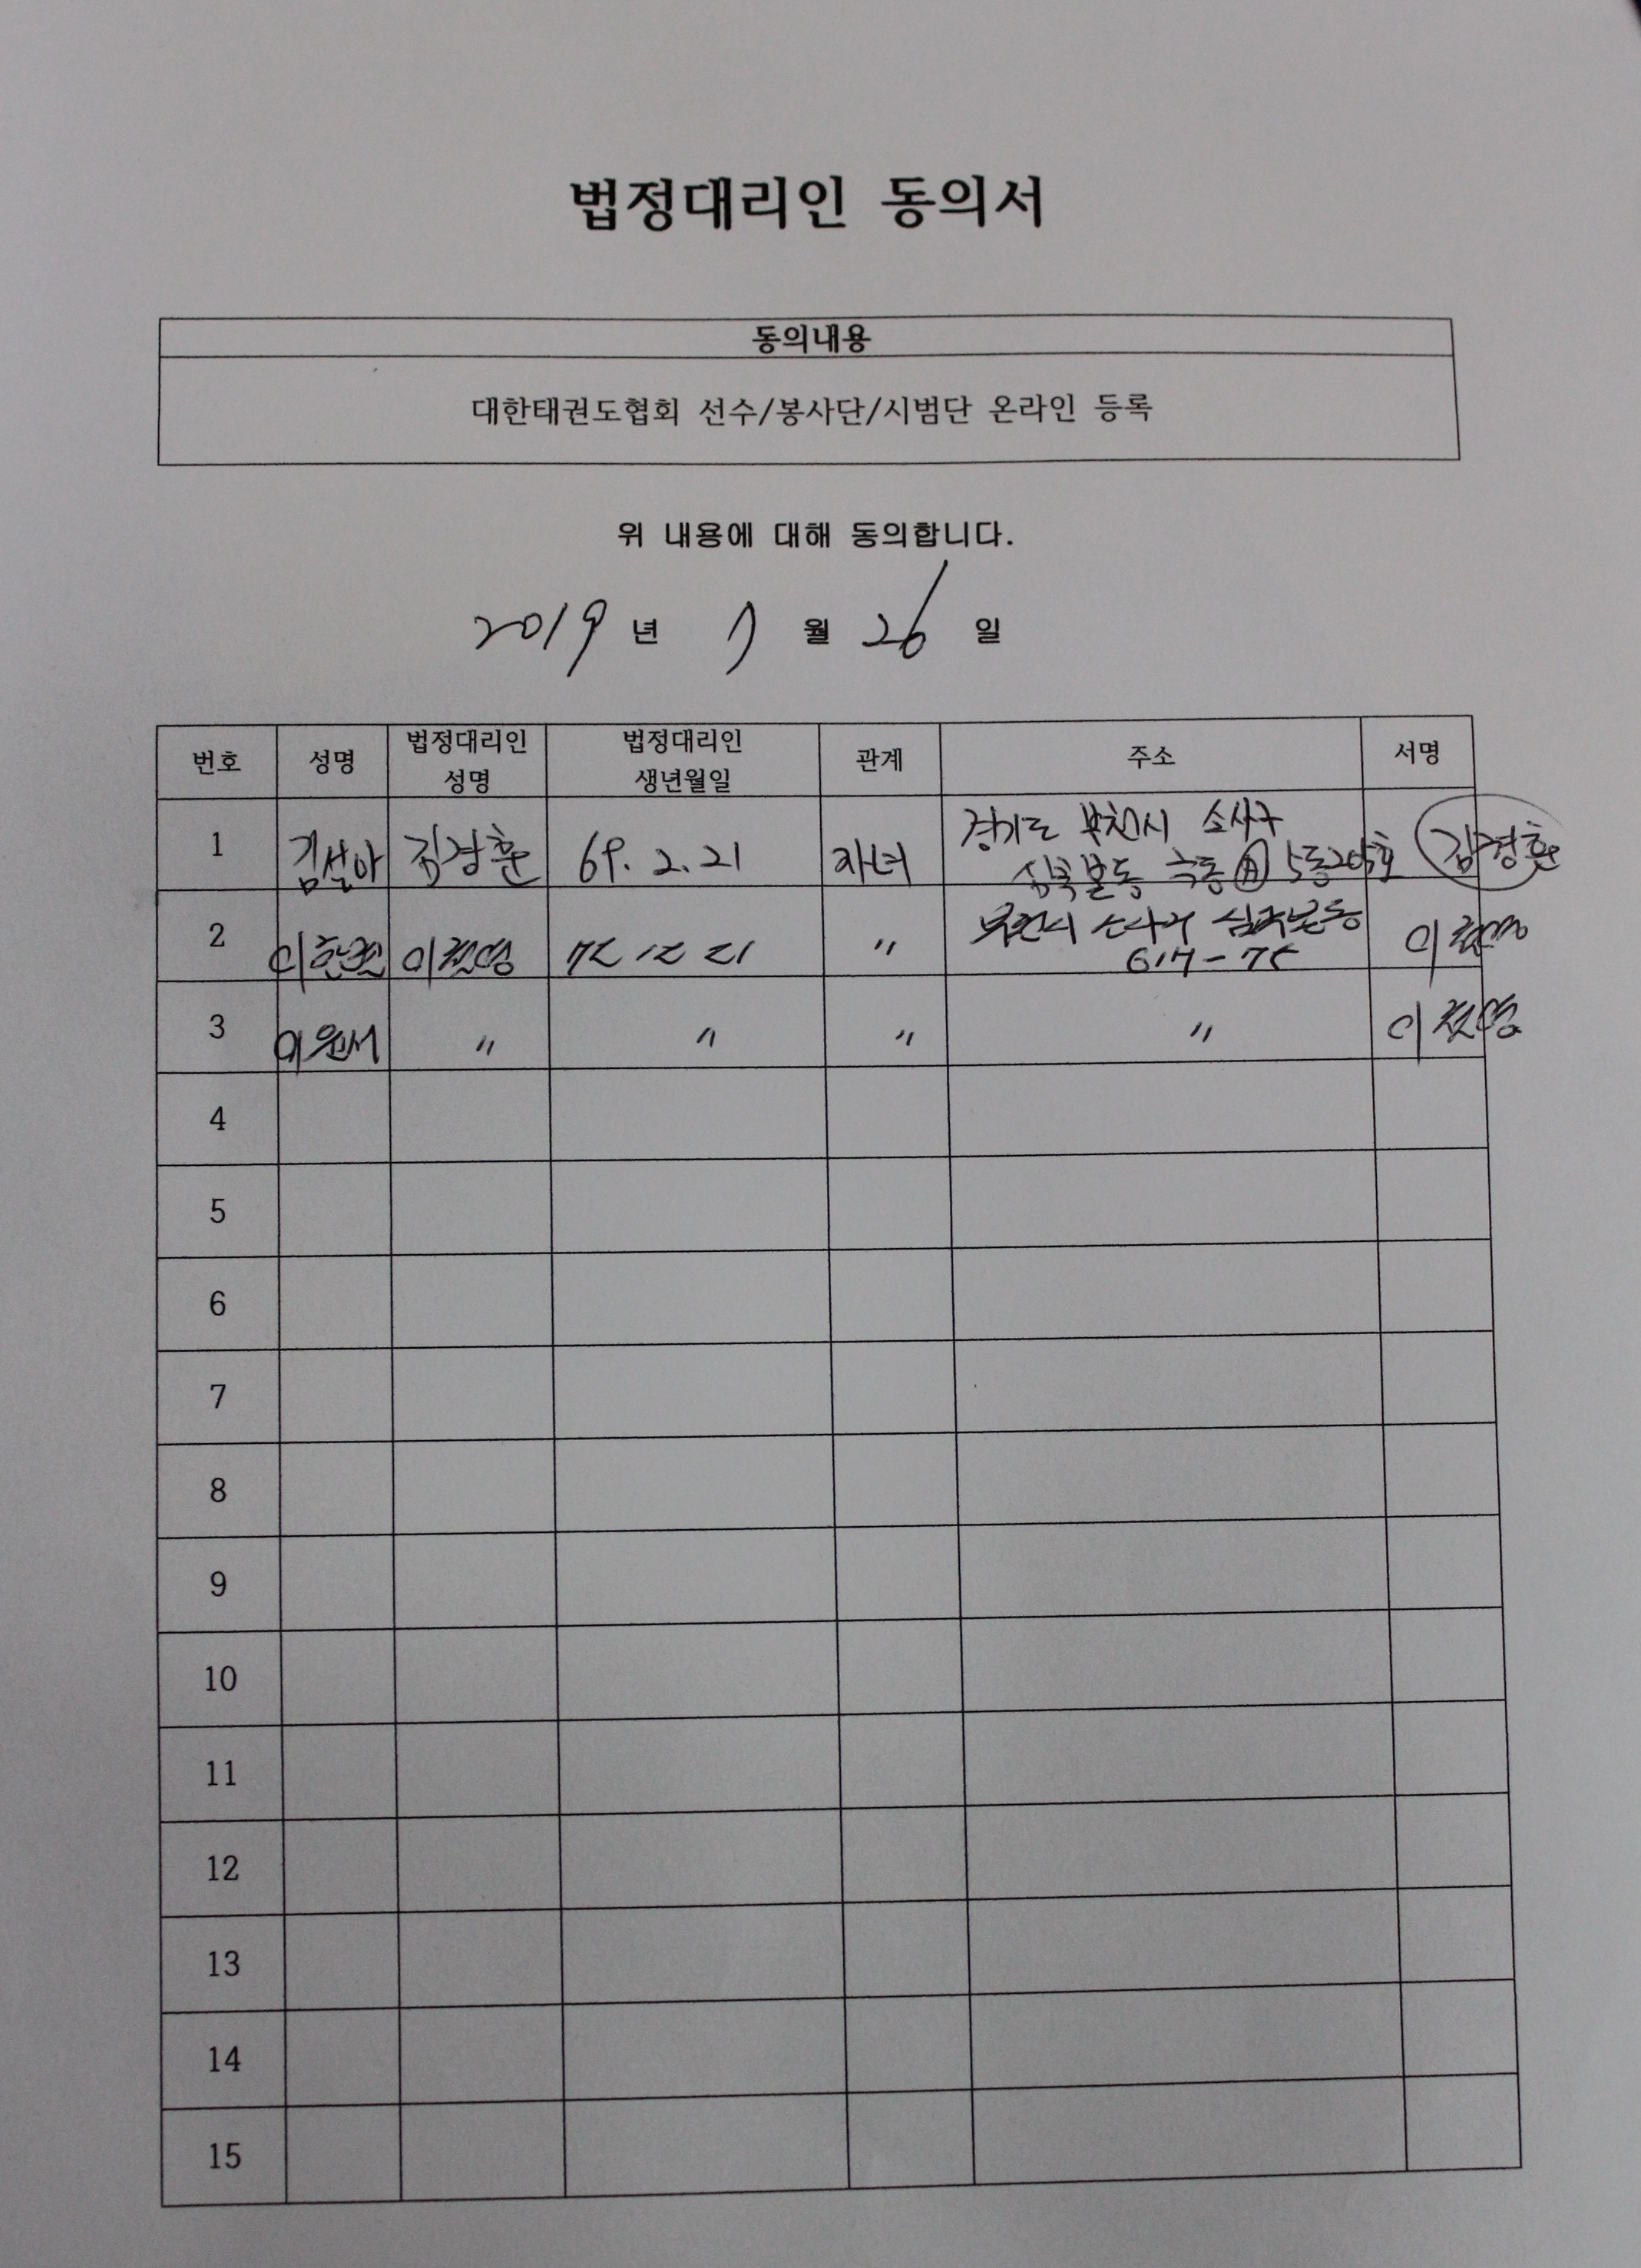 법정대리인 동의서
동의내용
대한태권도협회 선수/봉사단/시범단 온라인 등록
위 내용에 대해 동의합니다.
2019 년 7 월 26 일
번호 성명 법정대리인 성명 법정대리인 생년월일 관계 주소 서명
1 김설아 김경훈 69. 2. 21 자녀 경기도 부천시 소사구
심곡본동 극동 5동205호 김경훈
2 72 12 21 〃 부천시 소사구 심곡본동
617-75
3 이원서 〃 〃 〃 〃
4
5
6
7
8
9
10
11
12
13
14
15